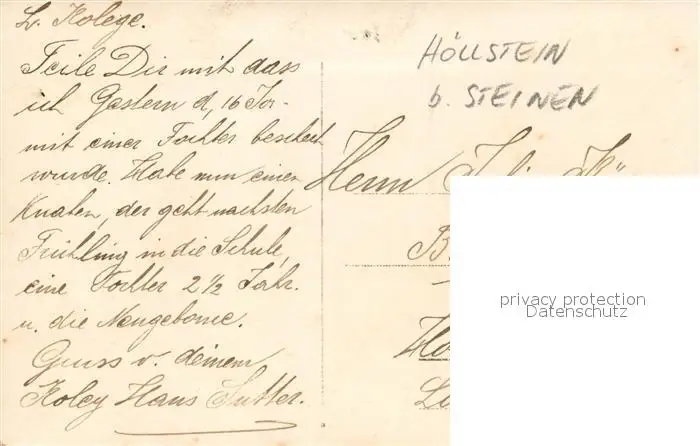 L. Kolege.
Teile Dir mit dass
ich Gestern d, 16 Jor-
mit einer Tochter beschert
wurde. Habe nun einen
Knaben, der geht nachsten
Frühling in die Schule,
eine Tochter 2 1/2 Jahr.
u. die Neugeborne.
Gruss v. deinem
Koleg Hans Sutter.
HÖLLSTEIN
b. STEINEN
Herrn
privacy protection
Datenschutz